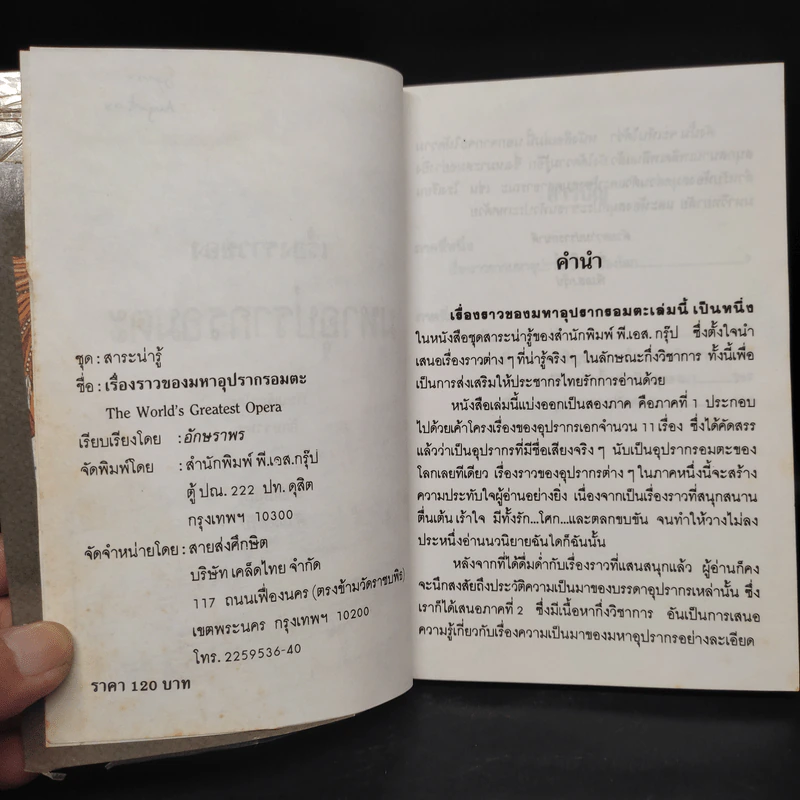 ชุด : สาระน่ารู้
ชื่อ : เรื่องราวของมหาอุปรากรอมตะ
The World's Greatest Opera
เรียบเรียงโดย : อักษราพร
จัดพิมพ์โดย : สำนักพิมพ์ พี.เอส.กรุ๊ป
ตู้ ปณ. 222 ปท. ดุสิต
กรุงเทพฯ 10300
จัดจำหน่ายโดย : สายส่งศึกษิต
บริษัท เคล็ดไทย จำกัด
117 ถนนเฟื่องนคร (ตรงข้ามวัดราชบพิธ)
เขตพระนคร กรุงเทพฯ 10200
โทร. 2259536-40
ราคา 120 บาท
คำนำ
เรื่องราวของมหาอุปรากรอมตะเล่มนี้ เป็นหนึ่ง
ในหนังสือชุดสาระน่ารู้ของสำนักพิมพ์ พี.เอส. กรุ๊ป ซึ่งตั้งใจนำ
เสนอเรื่องราวต่าง ๆ ที่น่ารู้จริง ๆ ในลักษณะกึ่งวิชาการ ทั้งนี้เพื่อ
เป็นการส่งเสริมให้ประชากรไทยรักการอ่านด้วย
หนังสือเล่มนี้แบ่งออกเป็นสองภาค คือภาคที่ 1 ประกอบ
ไปด้วยเค้าโครงเรื่องของอุปรากรเอกจำนวน 11 เรื่อง ซึ่งได้คัดสรร
แล้วว่าเป็นอุปรากรที่มีชื่อเสียงจริง ๆ นับเป็นอุปรากรอมตะของ
โลกเลยทีเดียว เรื่องราวของอุปรากรต่าง ๆ ในภาคหนึ่งนี้จะสร้าง
ความประทับใจผู้อ่านอย่างยิ่ง เนื่องจากเป็นเรื่องราวที่สนุกสนาน
ตื่นเต้น เร้าใจ มีทั้งรัก...โศก...และตลกขบขัน จนทำให้วางไม่ลง
ประหนึ่งอ่านนวนิยายอันใดก็อันนั้น
หลังจากที่ได้ดื่มด่ำกับเรื่องราวที่แสนสนุกแล้ว ผู้อ่านก็คง
จะนึกสงสัยถึงประวัติความเป็นมาของบรรดาอุปรากรเหล่านั้น ซึ่ง
เราก็ได้เสนอภาคที่ 2 ซึ่งมีเนื้อหากึ่งวิชาการ อันเป็นการเสนอ
ความรู้เกี่ยวกับเรื่องความเป็นมาของมหาอุปรากรอย่างละเอียด